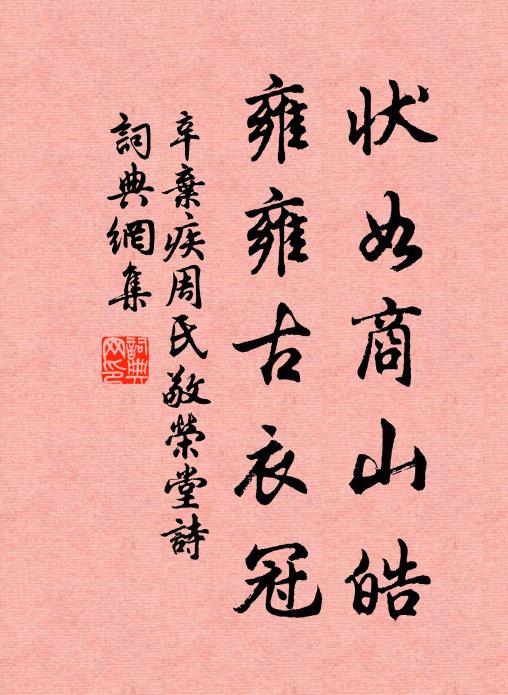 狀如商山皓
雍雍古衣冠
辛棄疾周氏敬榮堂詩
詞典網集
詞典網印